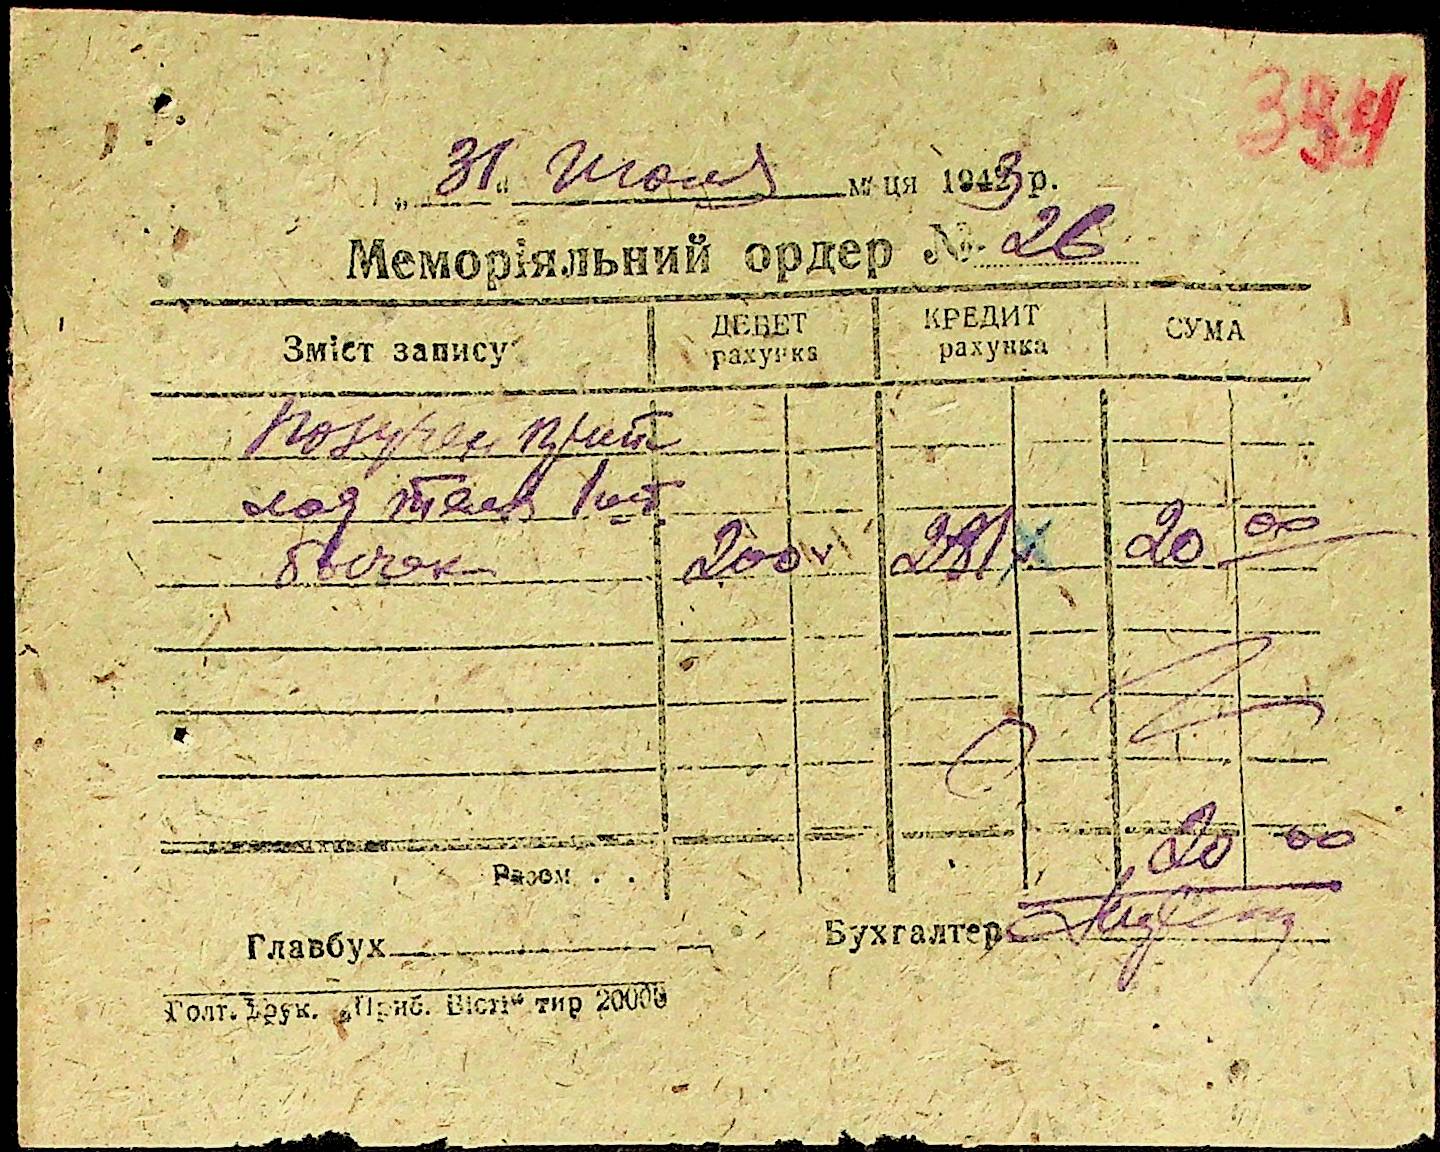 394
„31“ Июля м-ця 1943 р.
Меморіяльний ордер № 26
Зміст запису ДЕБЕТ рахунка КРЕДИТ рахунка СУМА
Получен при
лод телят 1 шт
бычек 200 281 20 00
20 00
Разом . .
Главбух Бухгалтер
Голт. Друк. „Приб. Вісті“ тир 20000